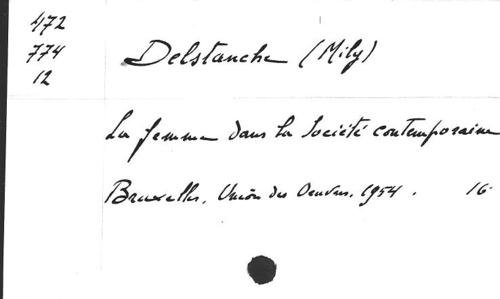 472
774
12
Delstanche (Mily)
La femme dans la Société contemporaine
Bruxelles, Union des Oeuvres, 1954. 16